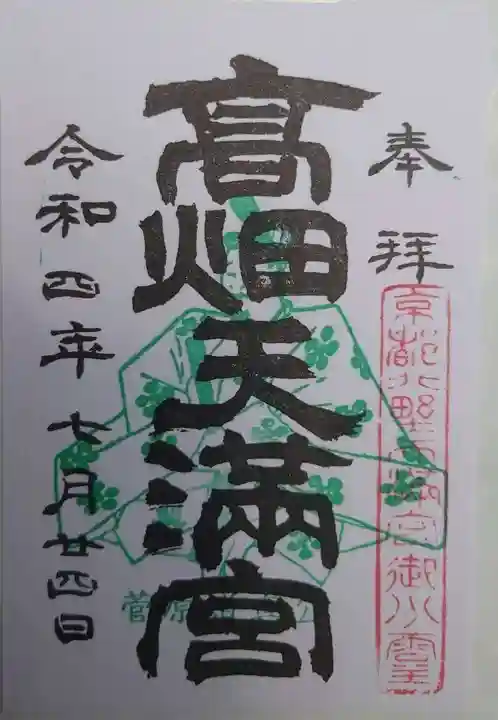 奉拝
京都北野天満宮御分霊
高畑天満宮
菅原道真公
令和四年七月廿四日